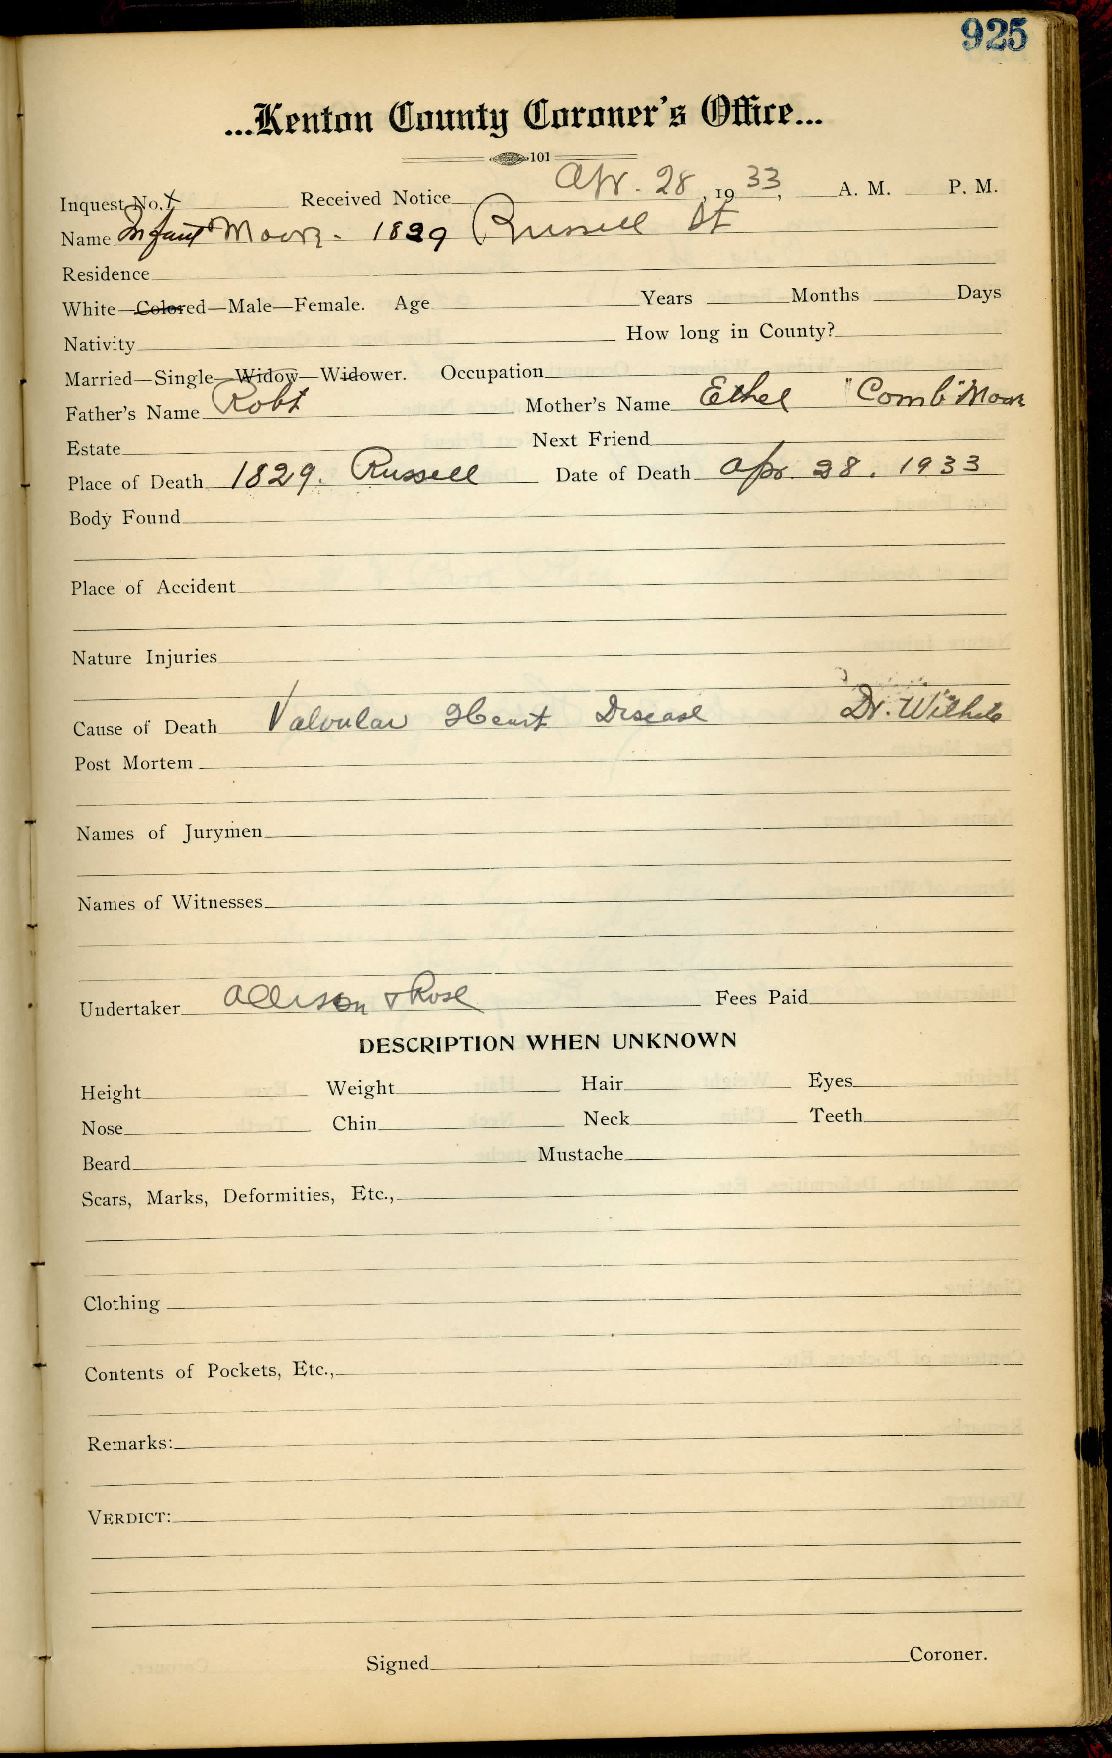 925
...Kenton County Coroner's Office...
101
Inquest No. X Received Notice Apr. 28, 1933, A. M. P. M.
Name Infant Moore - 1829 Russell St
Residence
White—Colored—Male—Female. Age Years Months Days
Nativity How long in County?
Married—Single—Widow—Widower. Occupation
Father's Name Robt Mother's Name Ethel "Comb" Moore
Estate Next Friend
Place of Death 1829. Russell Date of Death Apr. 28. 1933
Body Found
Place of Accident
Nature Injuries
Cause of Death Valvular Heart Disease Dr.
Post Mortem
Names of Jurymen
Names of Witnesses
Undertaker Allison & Rose Fees Paid
DESCRIPTION WHEN UNKNOWN
Height Weight Hair Eyes
Nose Chin Neck Teeth
Beard Mustache
Scars, Marks, Deformities, Etc.,
Clothing
Contents of Pockets, Etc.,
Remarks:
VERDICT:
Signed Coroner.